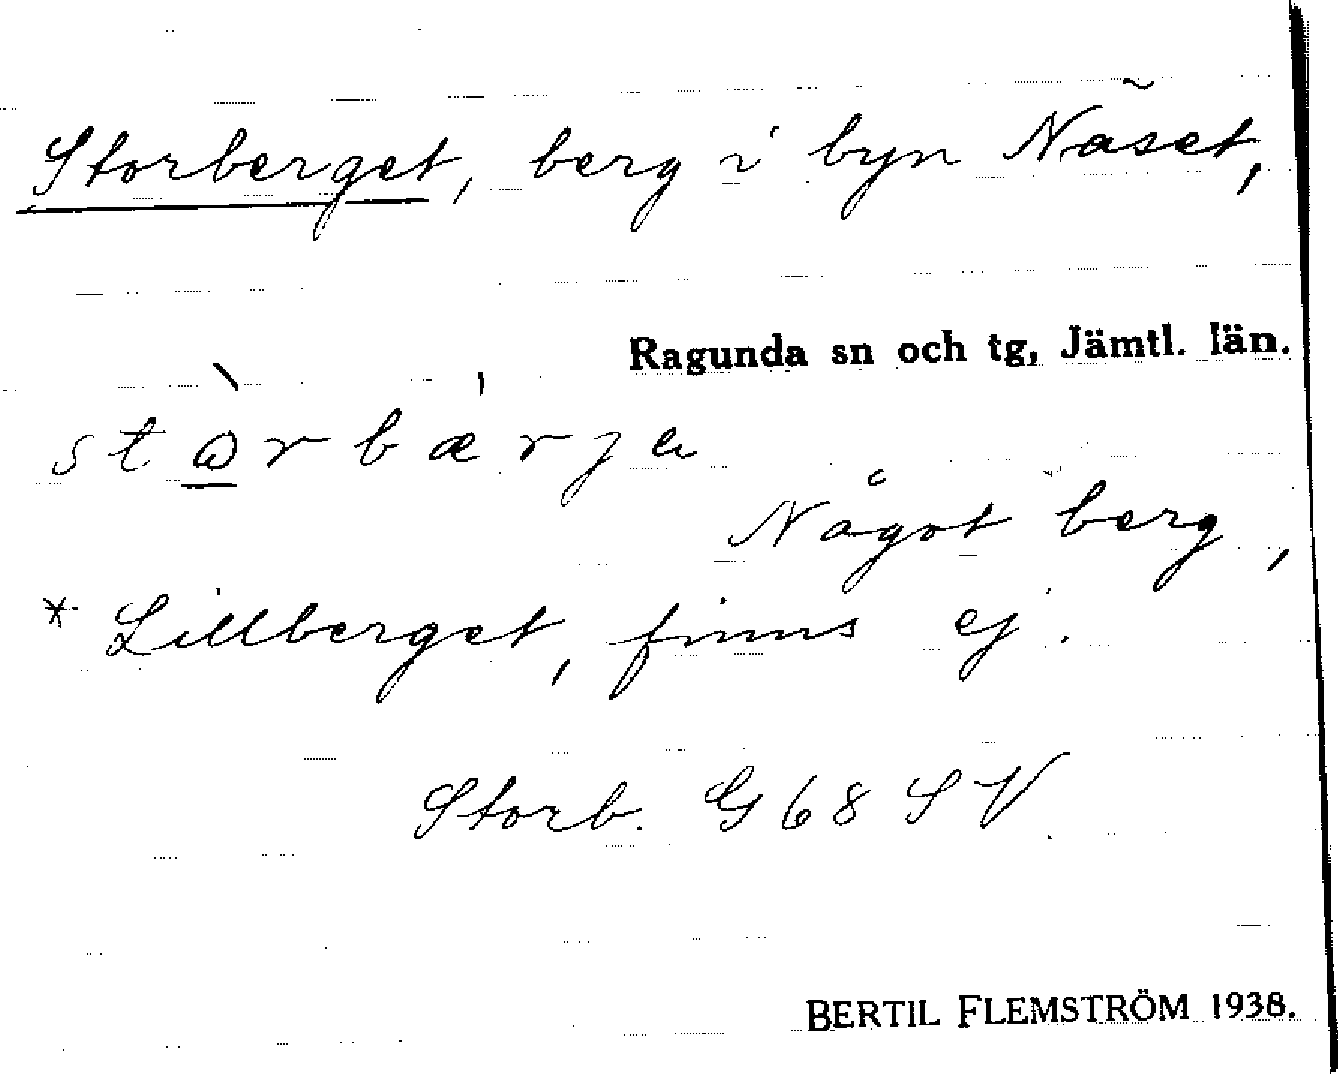 Storberget, berg i byn Näset,
Ragunda sn och tg, Jämtl. län.
Något berg,
* Lillberget, finns ej.
Storb. G 68 SV
BERTIL FLEMSTRÖM 1938.